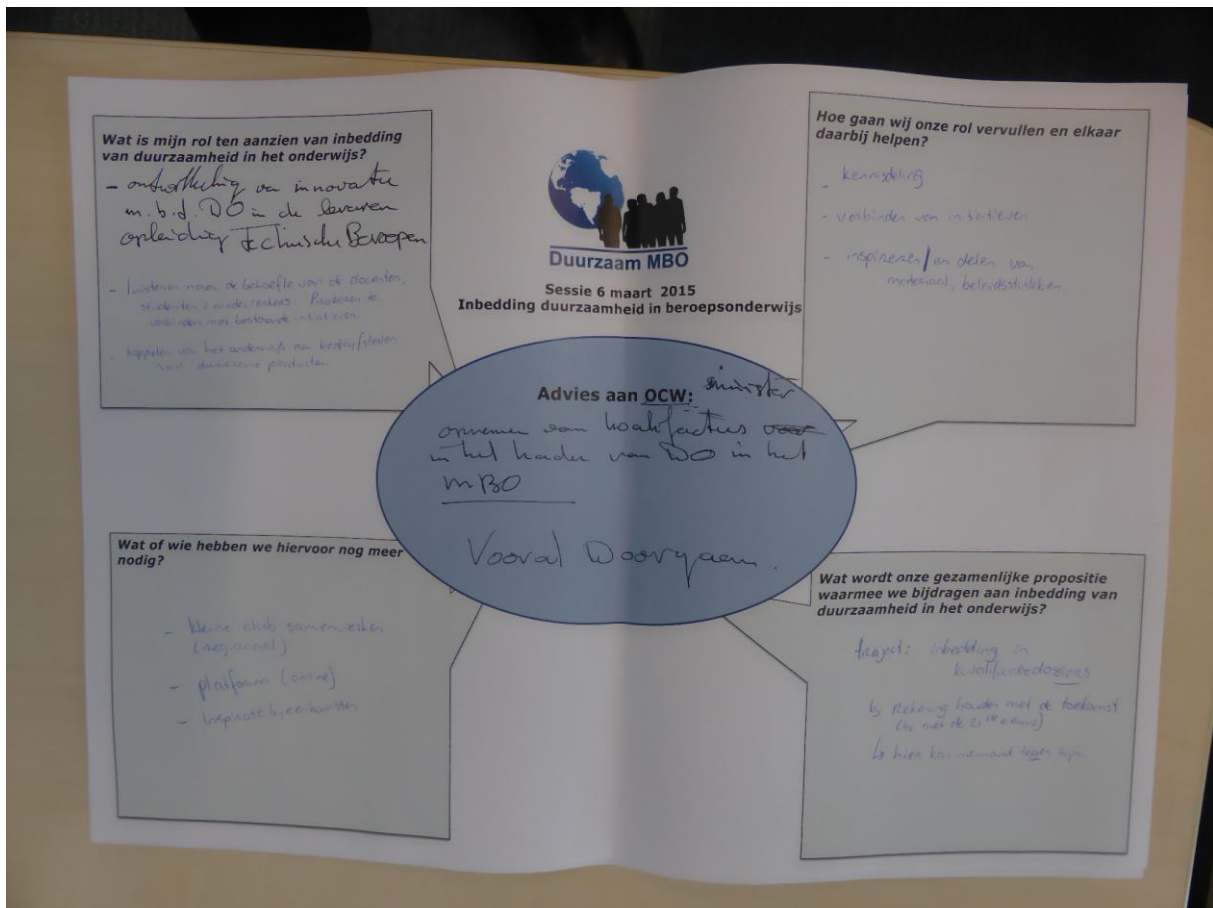 Wat is mijn rol ten aanzien van inbedding
van duurzaamheid in het onderwijs?
- ontwikkeling van innovatie
m.b.t. DO in de
opleiding Technische Beroepen
- luisteren naar de behoefte van de docenten,
studenten & medewerkers. Proberen te
verbinden met bestaande initiatieven.
koppelen van het onderwijs aan bedrijfsleven
duurzame producten.
Duurzaam MBO
Sessie 6 maart 2015
Inbedding duurzaamheid in beroepsonderwijs
Hoe gaan wij onze rol vervullen en elkaar
daarbij helpen?
- kennisdeling
- verbinden van initiatieven
- inspireren / en delen van
materiaal, beleidsstukken.
Advies aan OCW: minister
opnemen van
in het kader van DO in het
MBO
Vooral Doorgaan.
Wat of wie hebben we hiervoor nog meer
nodig?
- kleine club samenwerken
(regionaal)
- platform (online)
- Inspiratie bijeenkomsten
Wat wordt onze gezamenlijke propositie
waarmee we bijdragen aan inbedding van
duurzaamheid in het onderwijs?
traject: inbedding in
kwalificatiedossiers
↳ Rekening houden met de toekomst
met de 21ste eeuw)
↳ hier kan niemand tegen zijn